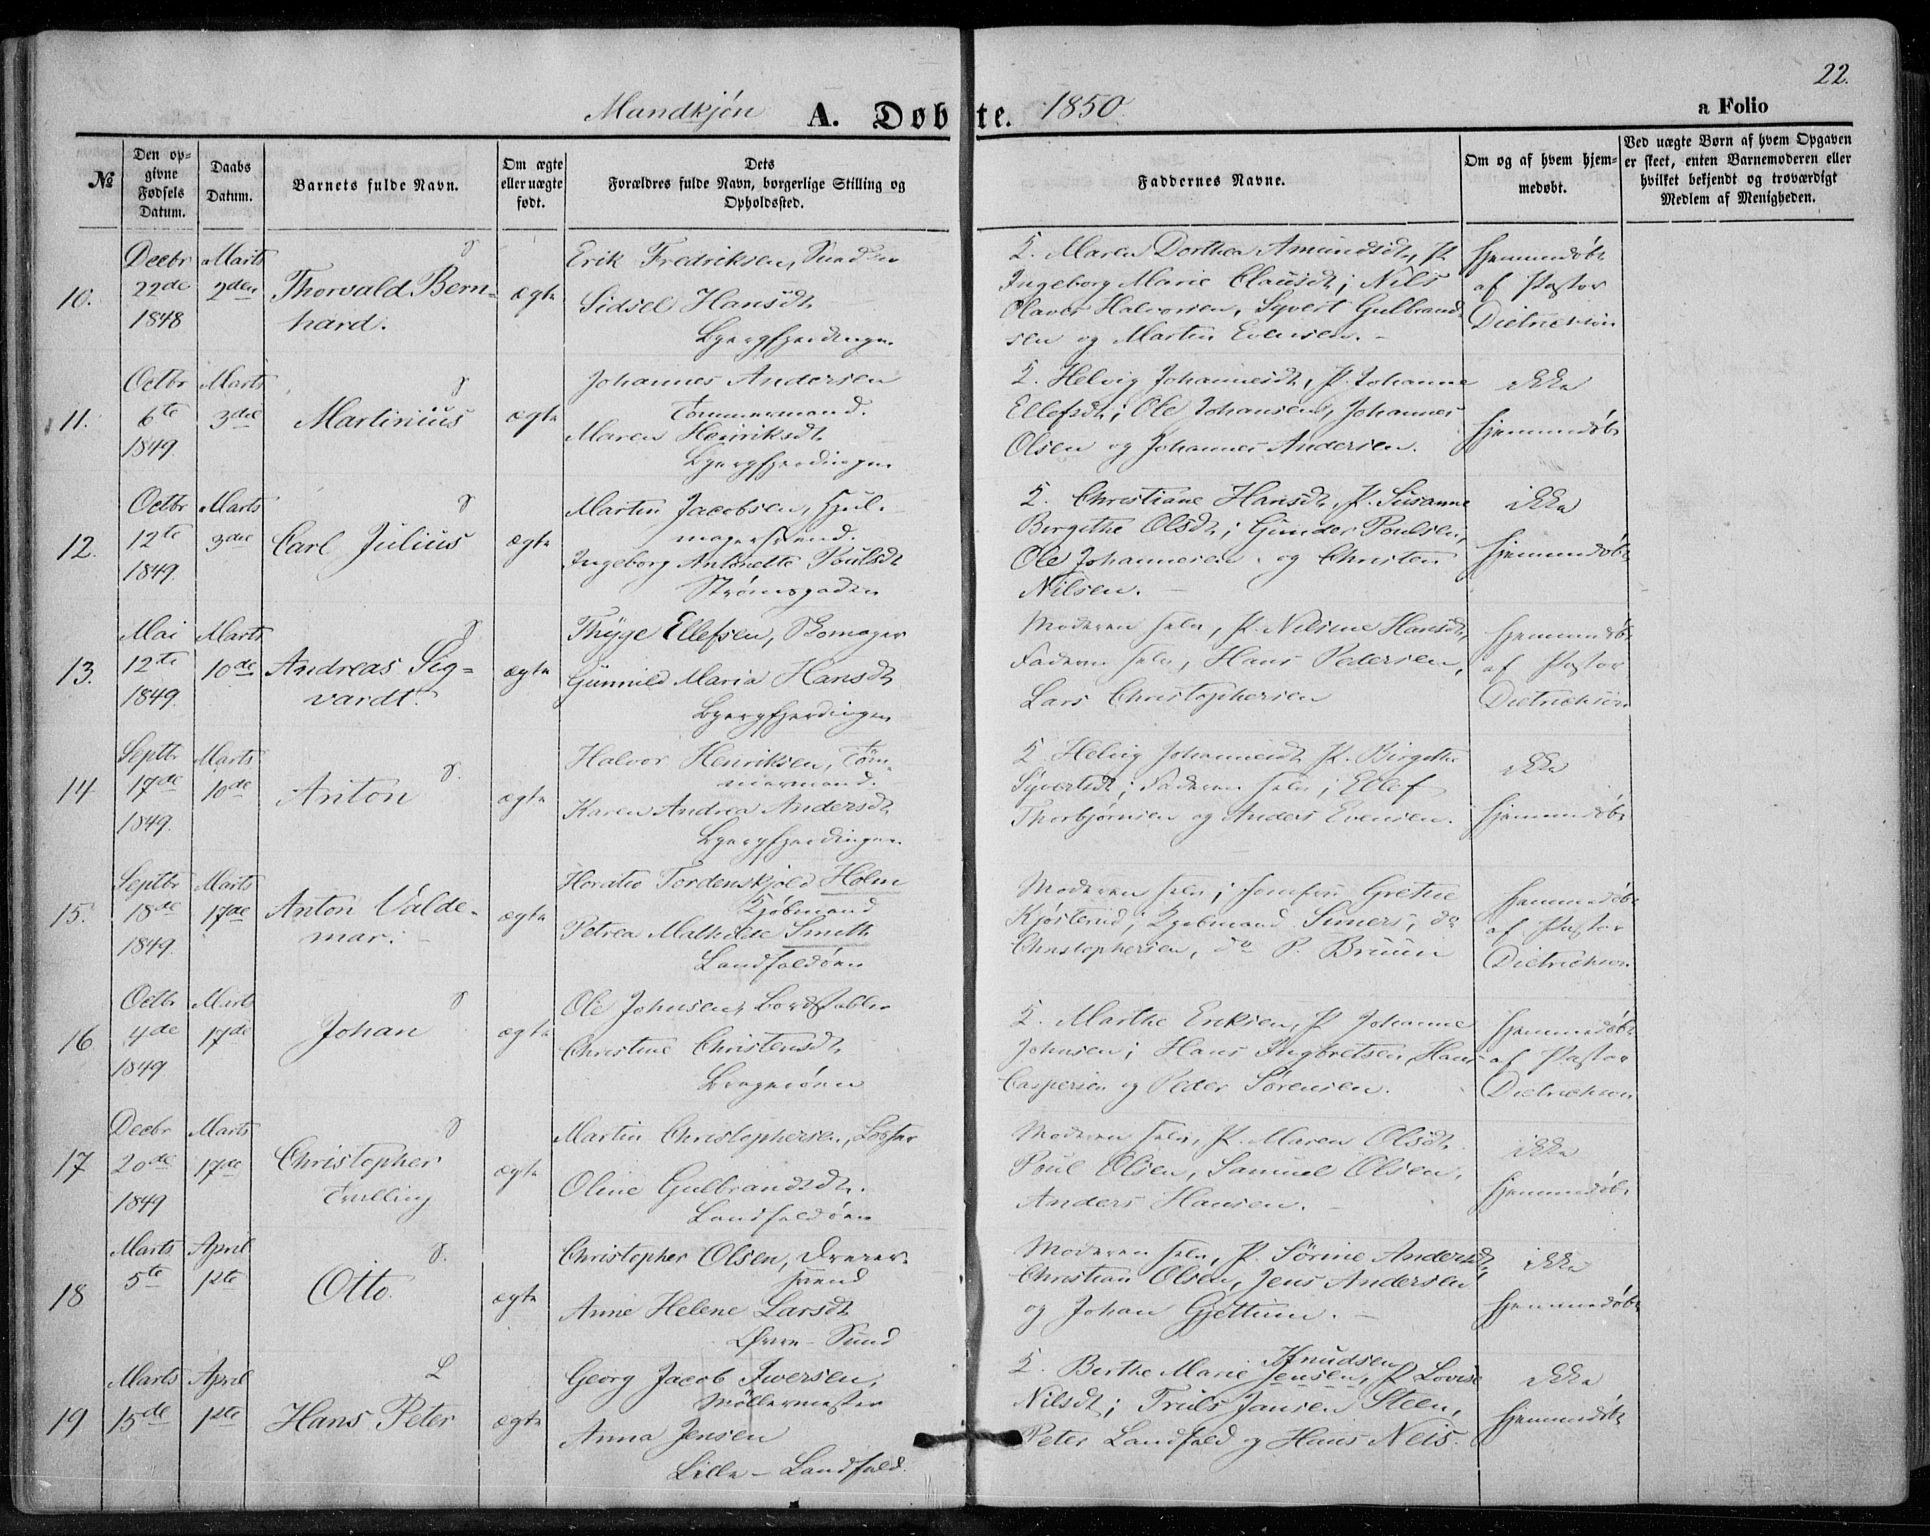 22.
Mandkjøn A. Døbte. 1850. a Folio
№
Den opgivne Fødsels Datum.
Daabs Datum.
Barnets fulde Navn.
Om ægte eller uægte født.
Dets Forældres fulde Navn, borgerlige Stilling og Opholdssted.
Faddernes Navne.
Om og af hvem hjemmedøbt.
Ved uægte Børn af hvem Opgaven er skeet, enten Barnemoderen eller hvilket bekjendt og troværdigt Medlem af Menigheden.
10.
Decbr
22de
1848
Marts
2den
Thorvald Bern-
hard.
ægte
Erik Fredriksen,
Sidsel Hansdt
Bjergfjerdingen
Maren Dorthea Amundsdt, P.
Ingeborg Marie Clausdt; Nils
Olaves Halvorsen, Syvert Gulbrand-
sen og Martin Evensen.
hjemmedøbt
af Pastor
Dietrichson
11.
Octbr
6te
1849
Marts
3die
Martinius
ægte
Johannes Andersen
Tømmermand.
Maren Henriksdt
Bjergfjerdingen
Helvig Johannesdt, P. Johanne
Ellefsdt; Ole Johansen, Johannes
Olsen og Johannes Andersen.
ikke
hjemmedøbt
12.
Octbr
12te
1849.
Marts
3die
Carl Julius
ægte
Martin Jacobsen, Hjul-
magersvend.
Ingeborg Antonette Poulsdt
Strømsgaden
Christiane Hansdt, P. Susanne
Birgithe Olsdt; Gunder Poulsen,
Ole Johannesen og Christen
Nilsen.
ikke
hjemmedøbt
13.
Mai
12te
1849.
Marts
10de
Andreas Sig-
vardt.
ægte
Thyge Ellefsen, Skomager
Gunnild Maria Hansdt
Bjergfjerdingen
Moderen selv, P. Nilsine Hansdt,
Faderen selv, Hans Pedersen,
Lars Christophersen
hjemmedøbt
af Pastor
Dietrichson
14
Septbr
17de
1849.
Marts
10de
Anton
ægte
Halvor Henriksen, Tøm-
mermand.
Karen Andrea Andersdt
Bjergfjerdingen.
Helvig Johannesdt P. Birgithe
Syvertsdt; Faderen selv; Ellef
Thorbjørnsen og Anders Evensen.
ikke
hjemmedøbt
15.
Septbr
18de
1849.
Marts
17de
Anton Valde-
mar.
ægte
Horatio Tordenskjold Holm
Kjøbmand
Petrea Mathilde Smith
Landfaldøen
Moderen selv; Jomfru Grethe
Kjøsterud; Kjøbmand Simers; do
Christophersen, do P. Bruun
hjemmedøbt
af Pastor
Dietrichson
16.
Octbr
4de
1849
Marts
17de
Johan
ægte
Ole Johnsen, Bordstabler
Christine Christensdt
Bragerøen
Marthe Eriksen, P. Johanne
Johnsen; Hans Ingbretsen, Hans
Caspersen og Peder Sørensen.
hjemmedøbt
af Pastor
Dietrichson
17
Decbr
20de
1849
Marts
17de
Christopher
Tvilling
ægte
Martin Christophersen,
Oline Gulbrandsdt.
Landfaldøen
Moderen selv, P. Maren Olsdt.
Poul Olsen, Samuel Olsen,
Anders Hansen.
ikke
hjemmedøbt
18
Marts
5te
April
1ste
Otto.
ægte
Christopher Olsen, Dreier-
svend
Anne Helene Larsdt
Øvre-Sund
Moderen selv, P. Sørine Andersdt,
Christian Olsen, Jens Andersen
og Johan Gjettum.
ikke
hjemmedøbt
19
Marts
15de
April
1ste
Hans Peter
ægte
Georg Jacob Iwersen,
Møllermester
Anna Jensen
Lille-Landfald.
Knudsen
Berthe Marie Jensen, P. Lovise
Nilsdt; Truls Jansen Steen,
Peter Landfald og Hans Neis.
ikke
hjemmedøbt